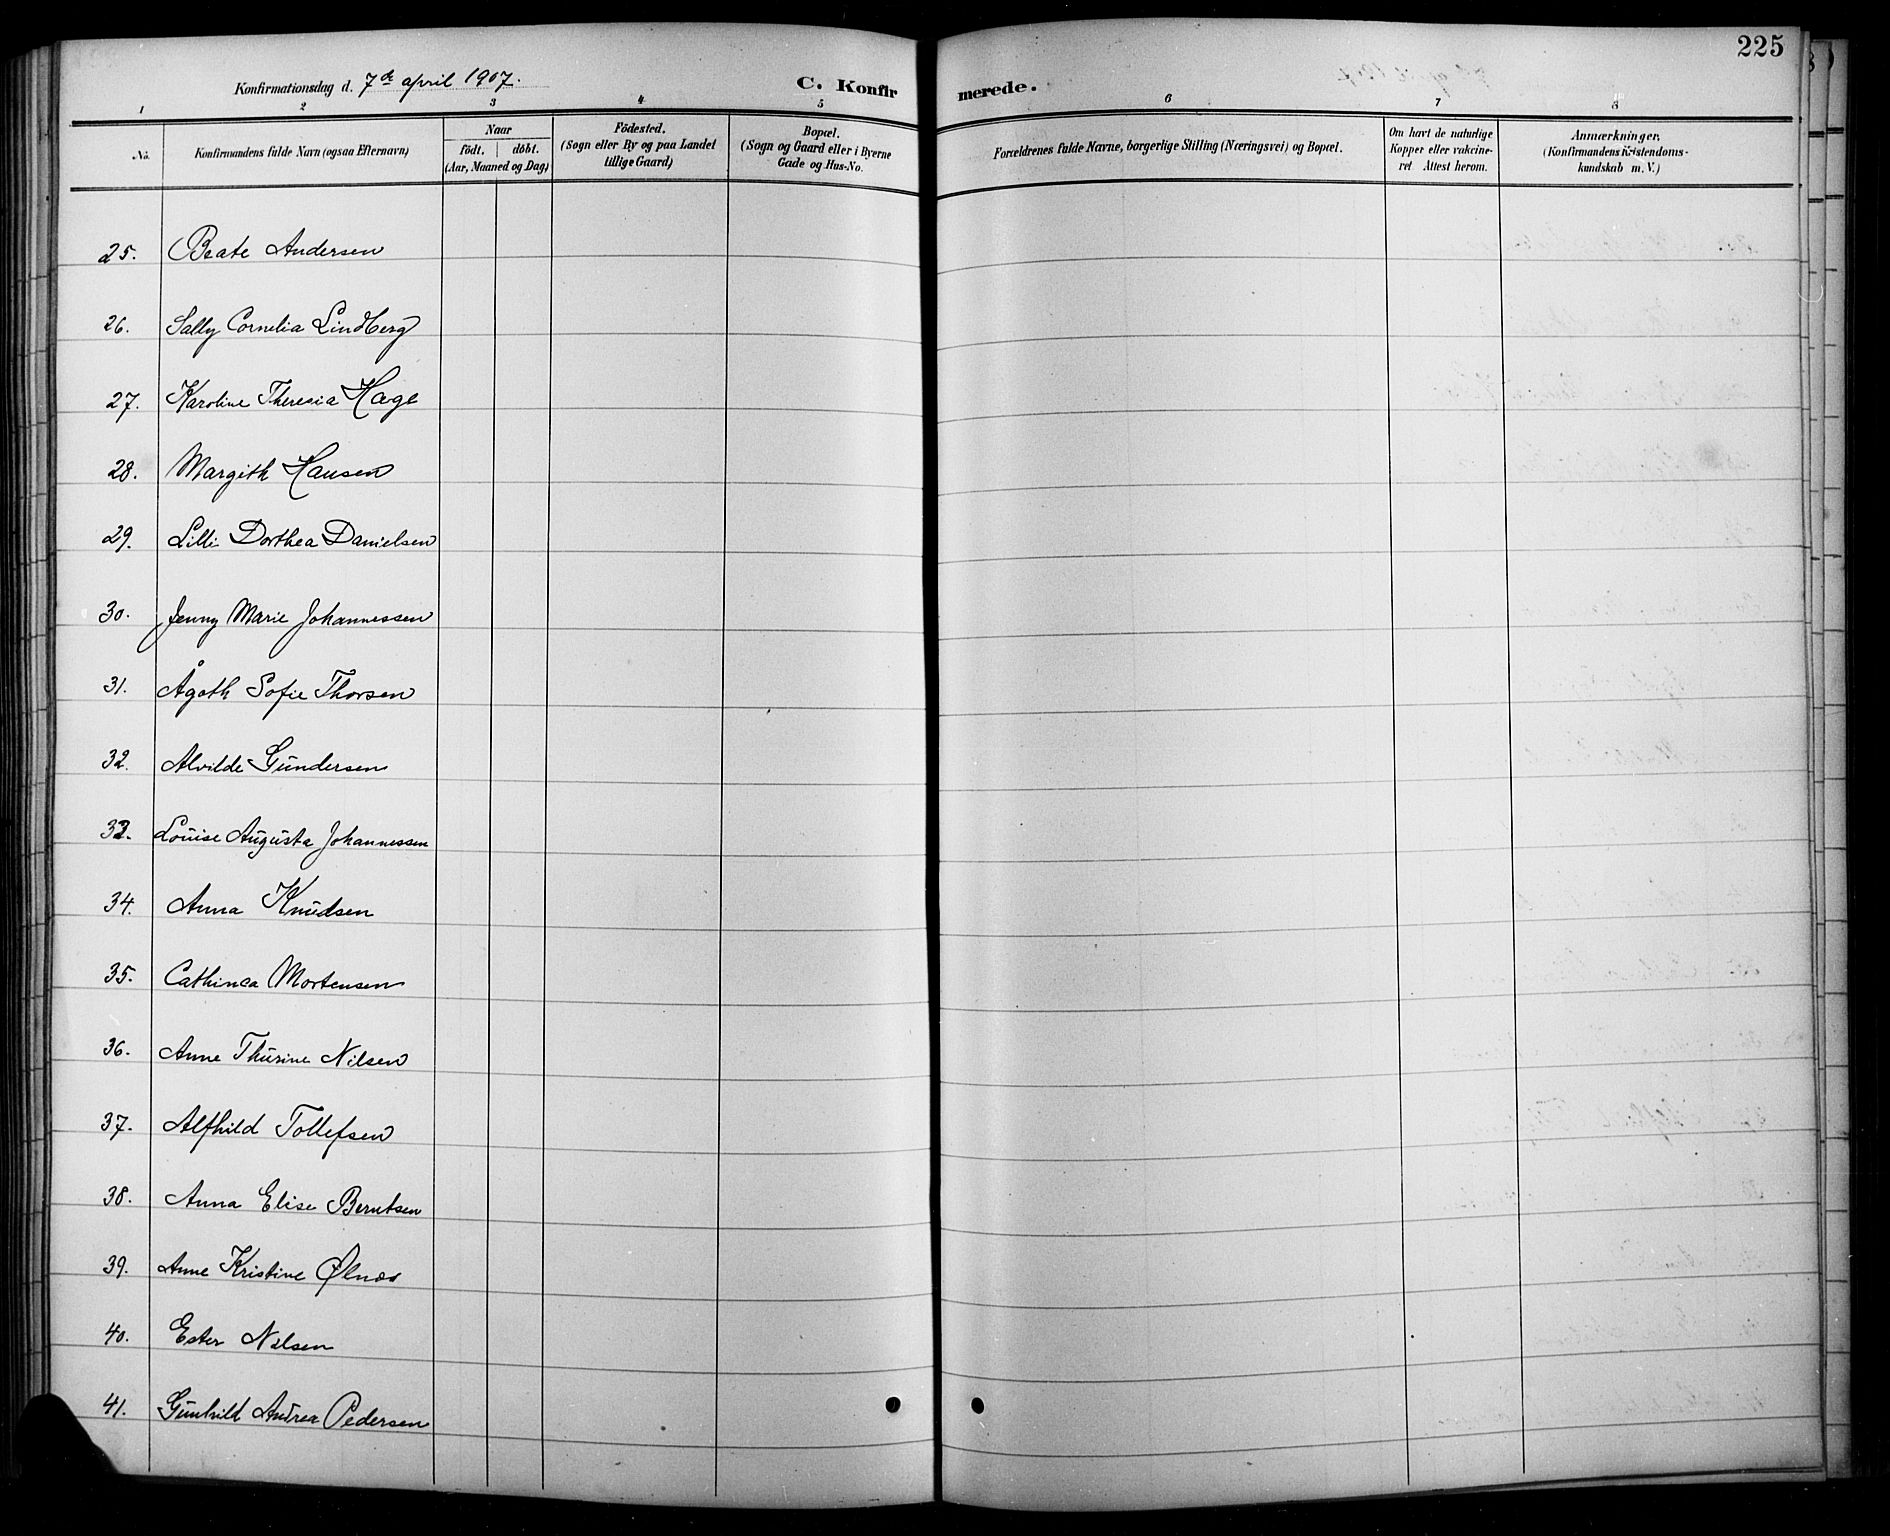 225
Konfirmationsdag d. 7de april 1907.
C. Konfirmerede.
1 2 3 4 5 6 7 8
No.
Konfirmandens fulde Navn (ogsaa Efternavn)
Naar
födt. döbt.
(Aar, Maaned og Dag)
Födested.
(Sogn eller By og paa Landet
tillige Gaard)
Bopæl.
(Sogn og Gaard eller i Byerne
Gade og Hus-No.
Forældrenes fulde Navne, borgerlige Stilling (Næringsvei) og Bopæl.
Om havt de naturlige
Kopper eller vakcine-
ret Attest herom.
Anmærkninger.
(Konfirmandens Kristendoms-
kundskab m. V.)
25. Beate Andersen
26. Sally Cornelia Lindberg
27. Karoline Theresia Hage
28. Margith Hansen
29. Lilli Dorthea Danielsen
30. Jenny Marie Johannessen
31. Ågoth Sofie Thorsen
32. Alvilde Gundersen
33. Louise Augusta Johannessen
34. Anna Knudsen
35. Cathinca Mortensen
36. Anne Thurine Nilsen
37. Alfhild Tollefsen
38. Anna Elise Berntsen
39. Anne Kristine Ølnæs
40. Ester Nilsen
41. Gunhild Andrea Pedersen